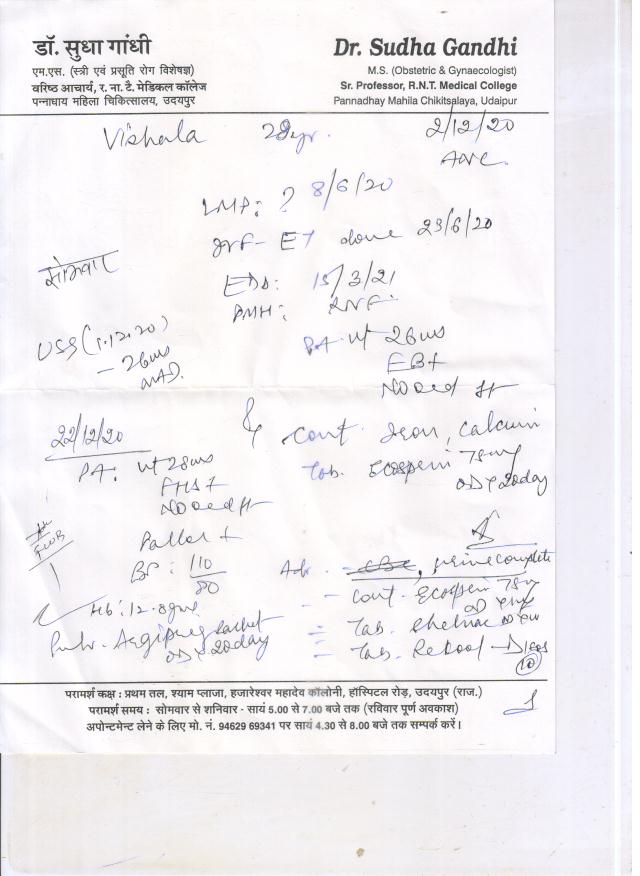 डॉ. सुधा गांधी
एम.एस. (स्त्री एवं प्रसूति रोग विशेषज्ञ)
वरिष्ठ आचार्य, र. ना. टै. मेडिकल कॉलेज
पन्नाधाय महिला चिकित्सालय, उदयपुर
Dr. Sudha Gandhi
M.S. (Obstetric & Gynaecologist)
Sr. Professor, R.N.T. Medical College
Pannadhay Mahila Chikitsalaya, Udaipur
Vishala 28yr. 2/12/20
ANC
LMP: ? 8/6/20
IVF - ET done 29/6/20
सोमवार
EDD: 15/3/21
PMH:
USG (1.12.20)
- 26ws
PA ut 26ws
FB+
22/12/20
Cont Iron, Calcium
Tab. Ecosprin 75mg
OD x 20day
PA: ut 28ws
FHS +
Pallor +
BP: 110/80
Adv. - CBC, urine complete
- Cont. Ecosprin 75mg
OD
Hb: 12.8gm
Argipreg Sachet
OD x 20day
- Tab.
- Tab.
10
परामर्श कक्ष : प्रथम तल, श्याम प्लाजा, हजारेश्वर महादेव कॉलोनी, हॉस्पिटल रोड़, उदयपुर (राज.)
परामर्श समय : सोमवार से शनिवार - सायं 5.00 से 7.00 बजे तक (रविवार पूर्ण अवकाश)
अपोन्टमेन्ट लेने के लिए मो. नं. 94629 69341 पर सायं 4.30 से 8.00 बजे तक सम्पर्क करें।